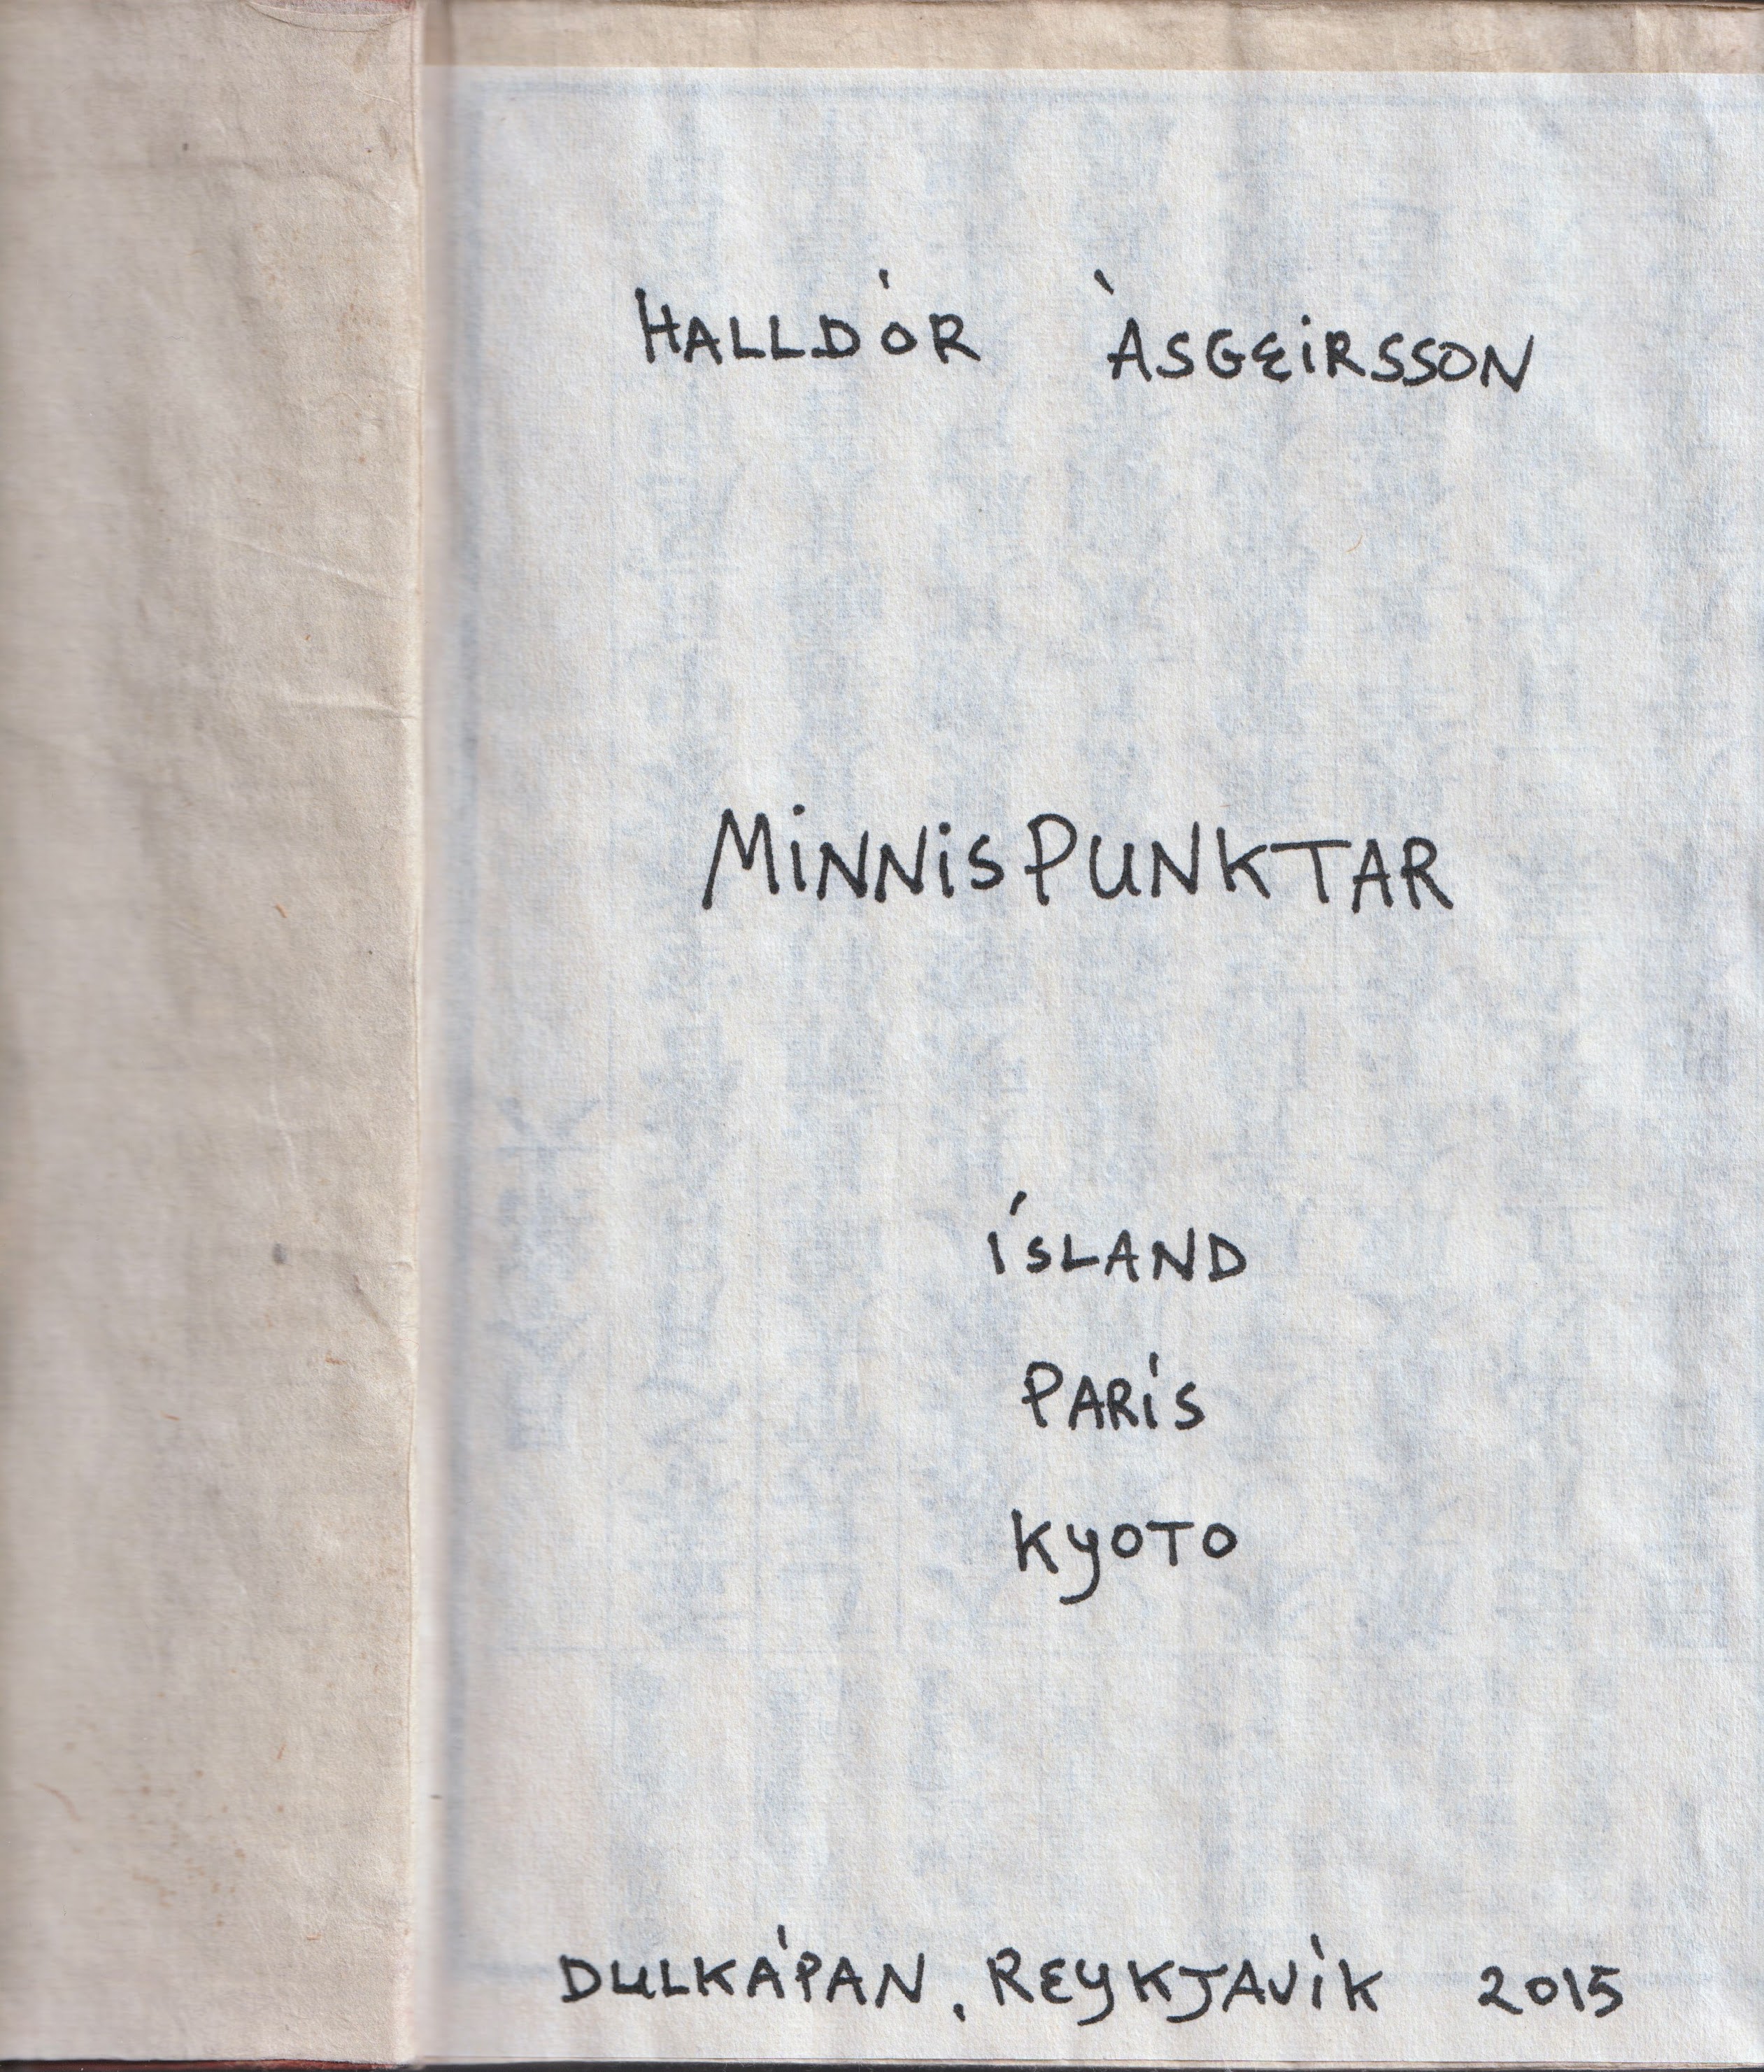 HALLDÓR ÀSGEIRSSON
MINNISPUNKTAR
ÍSLAND
PARÍS
KYOTO
DULKÁPAN, REYKJAVÍK 2015